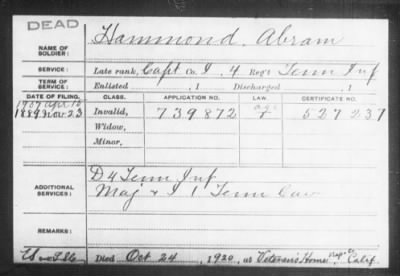 DEAD
NAME OF SOLDIER: Hammond, Abram
SERVICE: Late rank, Capt Co. I, 4 Reg't Tenn Inf
TERM OF SERVICE: Enlisted , 1 Discharged , 1
DATE OF FILING. CLASS. APPLICATION NO. LAW. CERTIFICATE NO.
1907 Apr 15 age
1889 Nov 23 Invalid, 739872 527237
Widow,
Minor,
ADDITIONAL SERVICES: D 4 Tenn Inf
Maj & I 1 Tenn Cav
REMARKS:
Died Oct 24, 1920, at Veteran's Home, Nap. Co. Calif.